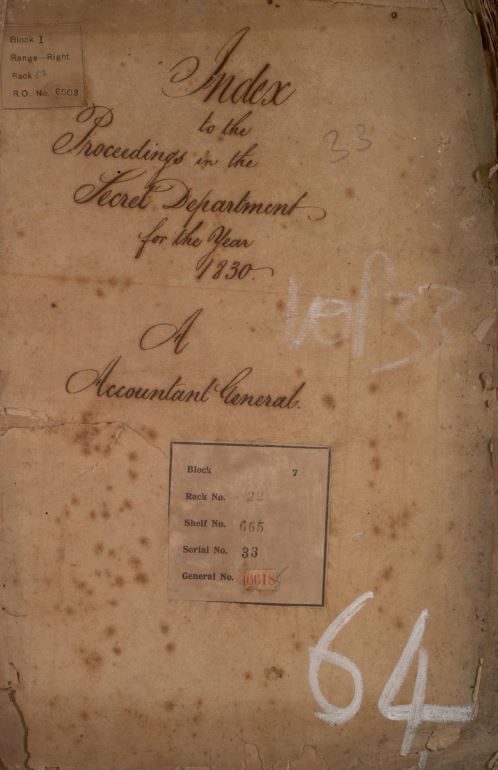 Block 1
Range—Right
Rack 52
R.O. No. 6503
Index
to the
33
Proceedings in the
Secret Department
for the Year
1830.
Vol 33
A
Accountant General.
Block 7
Rack No. 22
Shelf No. 665
Serial No. 33
General No. 6618
64